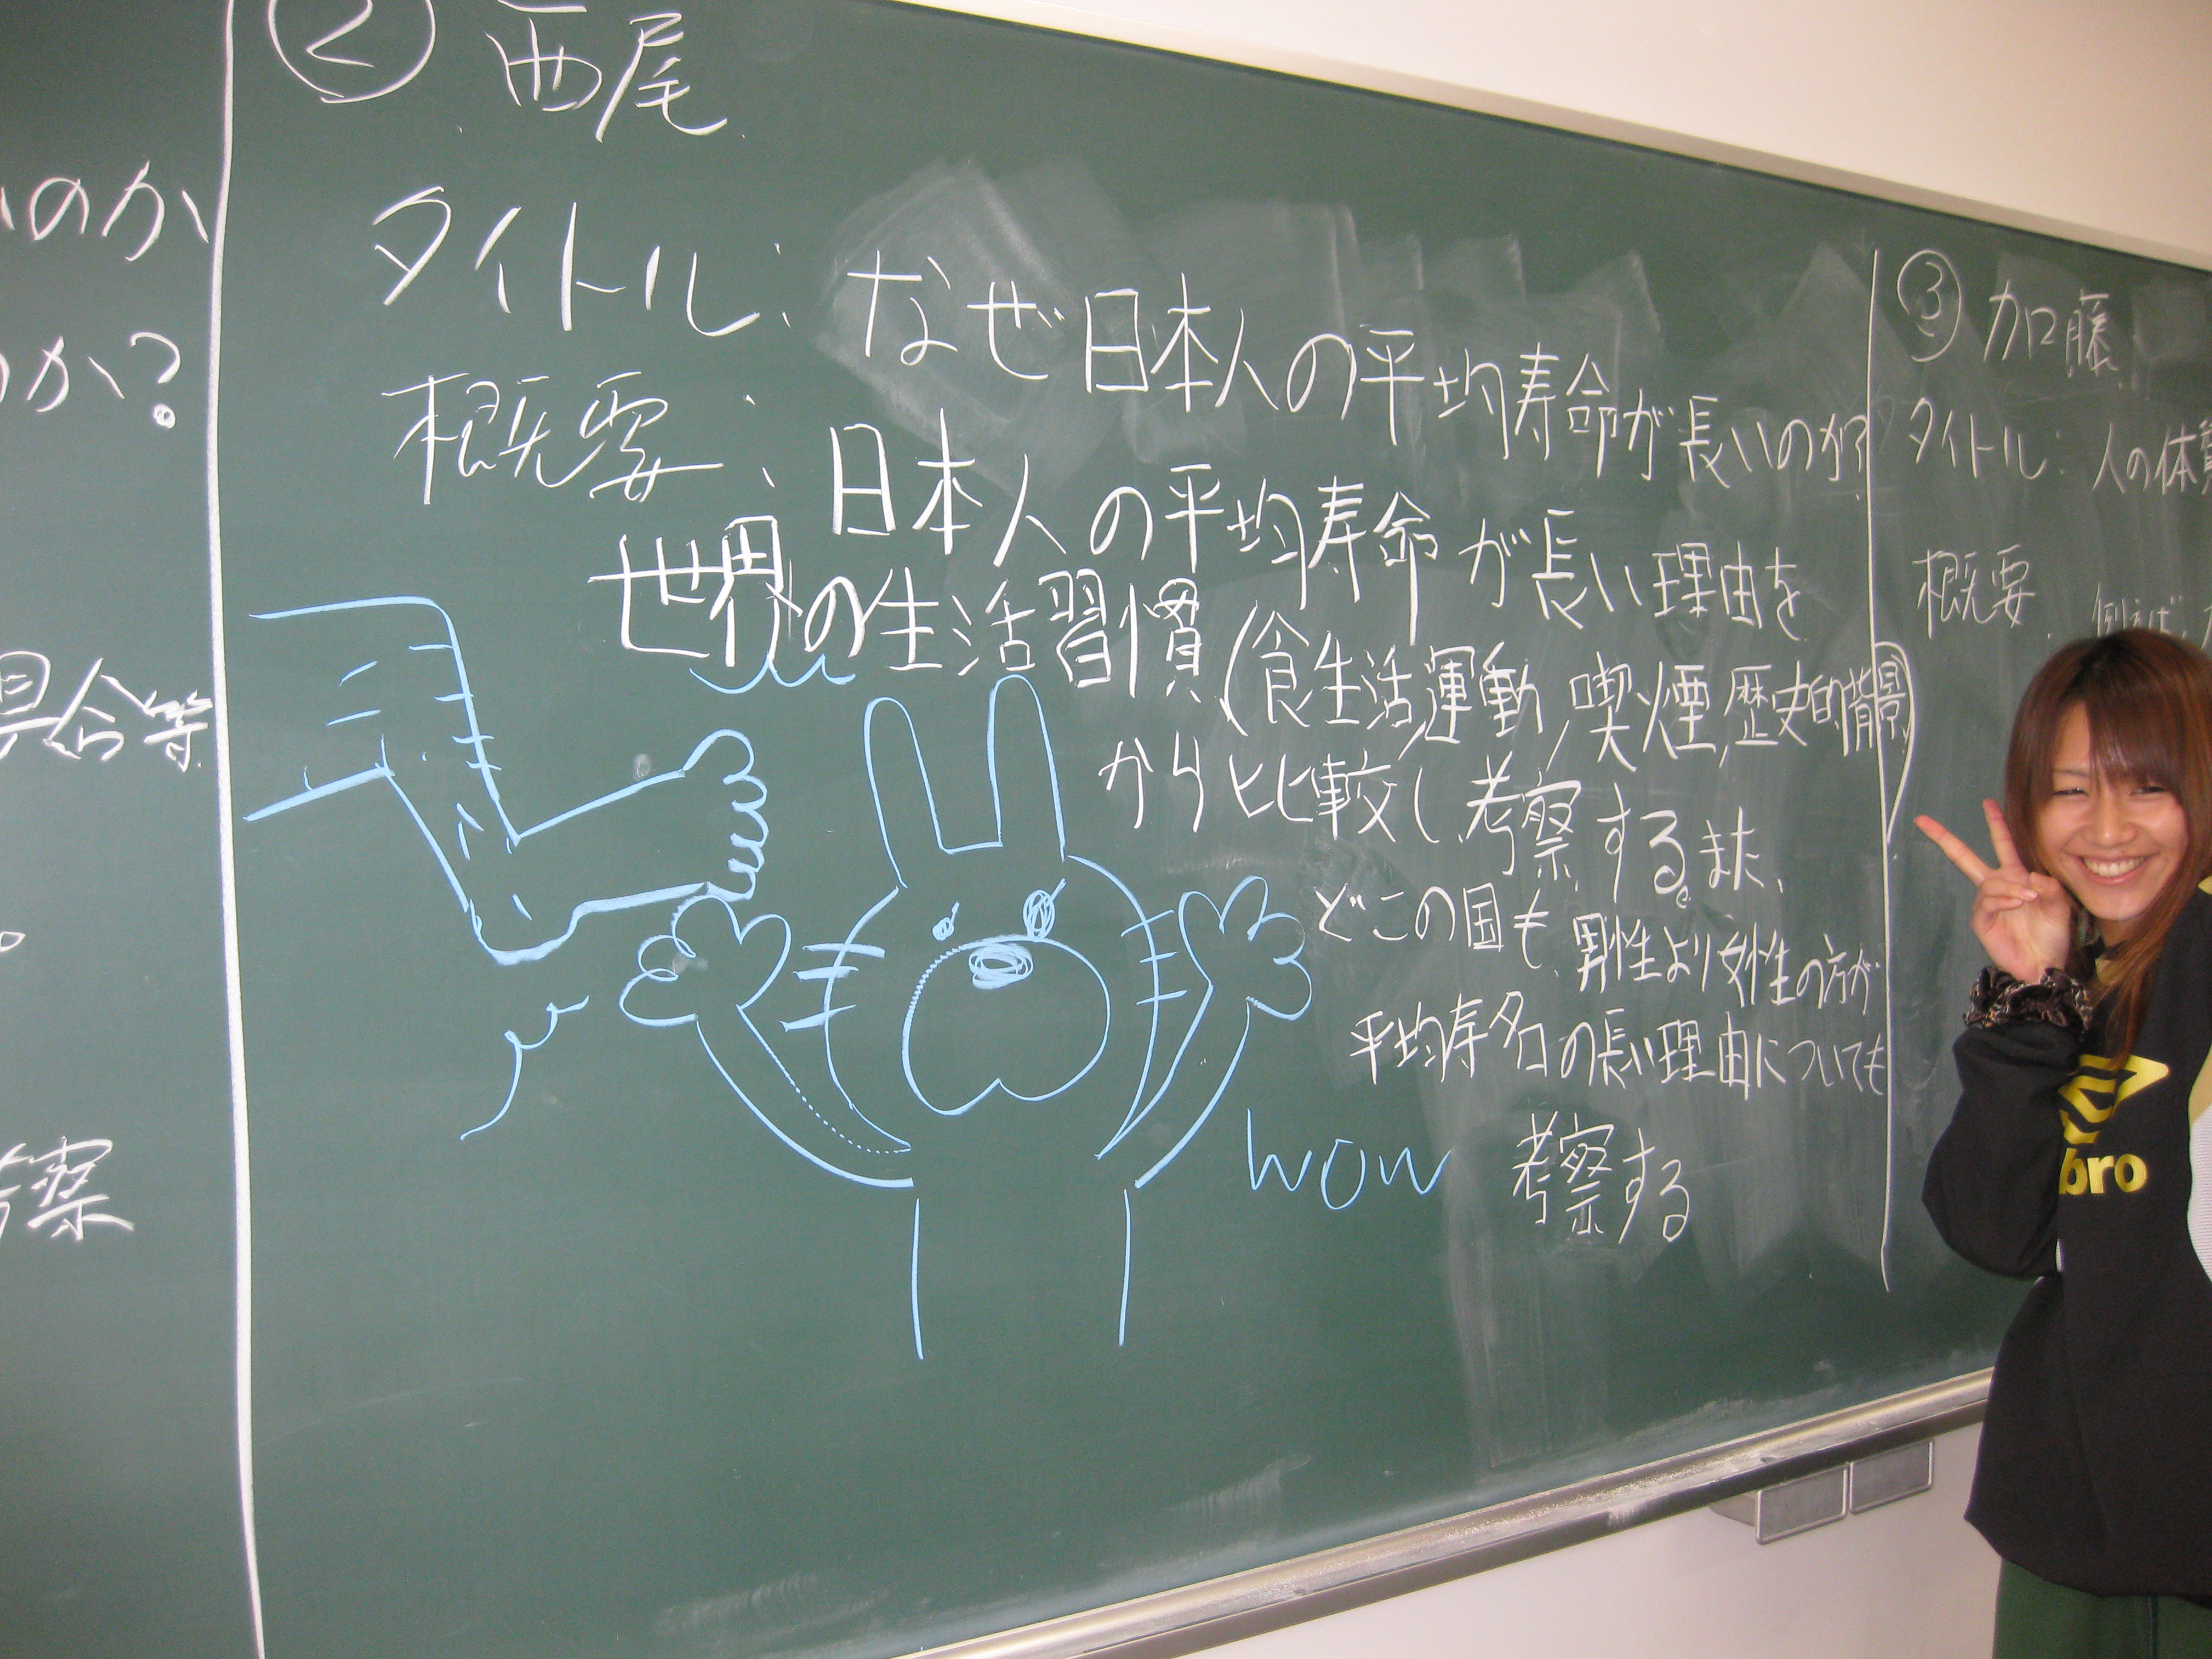 のか
のか?
具合等
考察
② 西尾
タイトル: なぜ日本人の平均寿命が長いのか?
概要: 日本人の平均寿命が長い理由を
世界の生活習慣(食生活,運動,喫煙,歴史的背景)
から比較し考察する。また、
どこの国も、男性より女性の方が
平均寿命の長い理由についても
考察する
wow
③ 加藤
タイトル: 人の体質
概要. 例えば、
bro